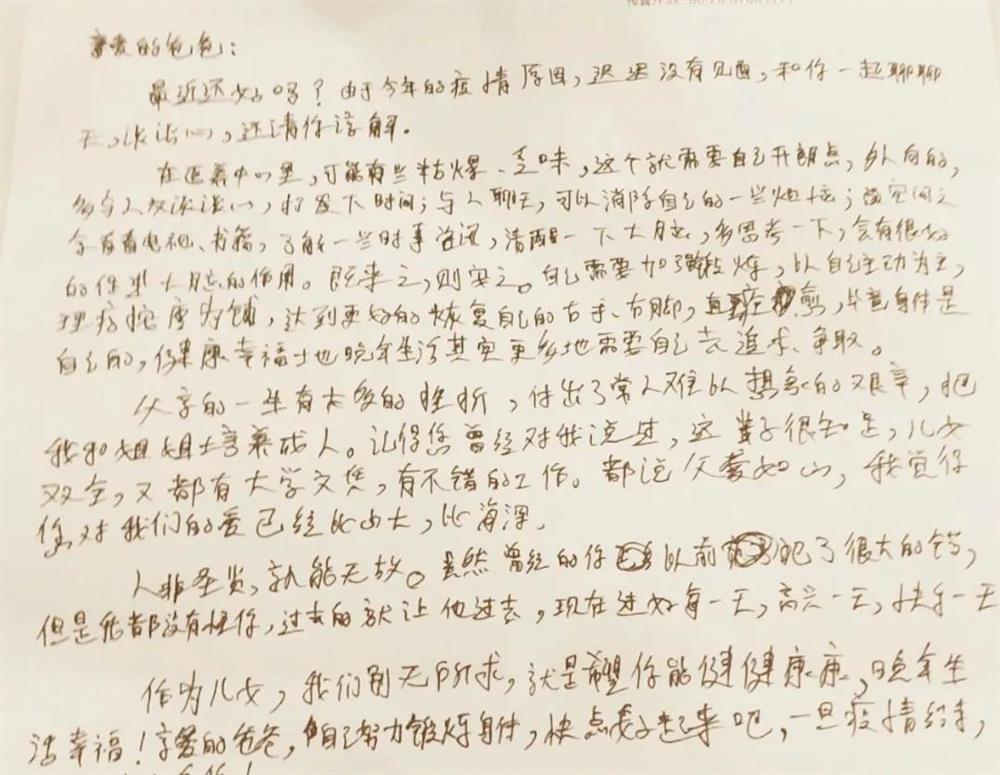 亲爱的爸爸：
最近还好吗？由于今年的疫情原因，迟迟没有见面，和你一起聊聊
天，谈谈心，还请你谅解.
在医养中心里，可能有些枯燥、乏味，这个就需要自己开朗点，外向的，
多与人谈谈心，打发下时间；与人聊天，可以消除自己的一些烦恼；
看看电视、书籍，了解一些时事资讯，清醒一下大脑，多思考一下，会有很好
的作用。既来之，则安之。自己需要加强锻炼，以自己主动为主，
理疗按摩为辅，达到更好的恢复自己的右手、右脚，直至痊愈，毕竟身体是
自己的，健康幸福士也晚年生活其实更多地需要自己去追求、争取。
父亲的一生有太多的挫折，付出了常人难以想象的艰辛，把
我和姐姐培养成人。记得您曾经对我说过，这辈子很知足，儿女
双全，又都有大学文凭，有不错的工作。都说父爱如山，我觉得
您对我们的爱已经比山大，比海深.
人非圣贤，孰能无故。虽然曾经的你以前犯了很大的错，
但是我都没有怪你，过去的就让他过去，现在过好每一天，高兴一天，快乐一天
作为儿女，我们别无所求，就是希望你能健健康康，晚年生
活幸福！亲爱的爸爸，自己努力锻炼身体，快点好起来吧，一旦疫情结束，